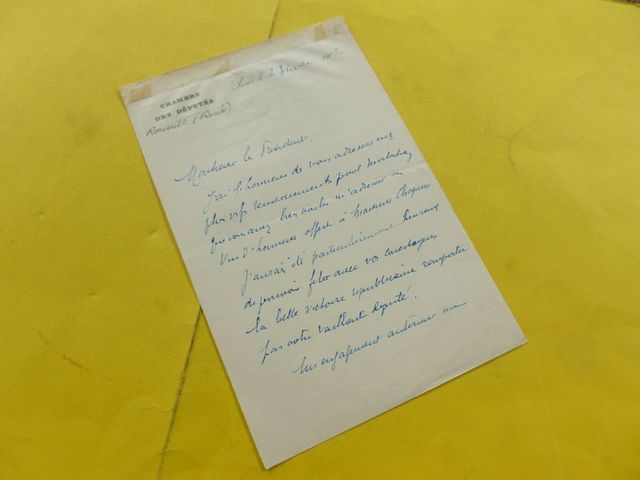 CHAMBRE
DES DÉPUTÉS
Paris le 2
(René)
Monsieur le Président,
J'ai l'honneur de vous adresser mes
plus vifs remerciements pour l'invitation
que vous avez bien voulu m'adresser au
Vin d'honneur offert à Monsieur
J'aurais été particulièrement heureux
de pouvoir fêter avec vos
la belle victoire républicaine remportée
par votre vaillant député.
Un engagement antérieur me